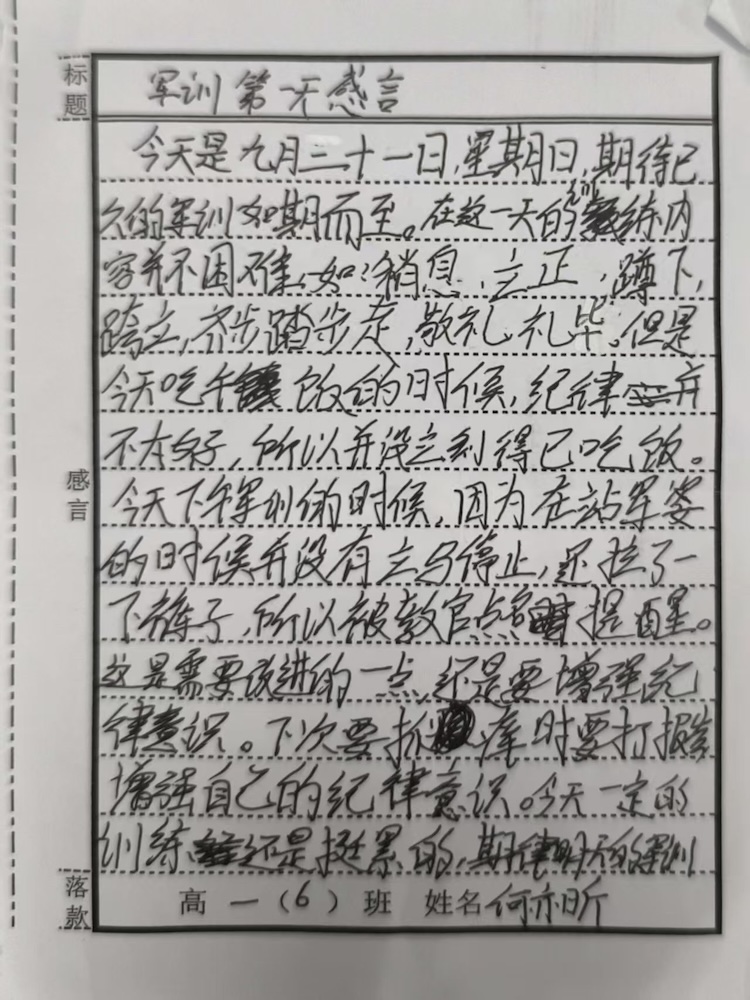 标题
军训第一天感言
今天是九月二十一日,星期日,期待已
久的军训如期而至。在这一天的训练内
容并不困难,如:稍息,立正,蹲下,
跨立,齐步踏步走,敬礼,礼毕。但是
今天吃午饭的时候,纪律
不太好,所以并没立刻得已吃饭。
今天下午军训的时候,因为在站军姿
的时候并没有立马停止,还拉了一
下裤子,所以被教官点名提醒。
感言
这是需要改进的一点,还是要增强纪
律意识。下次要抓痒时要打报告
增强自己的纪律意识。今天一定的
训练还是挺累的,期待明天的军训
落款
高一(6)班 姓名何亦昕